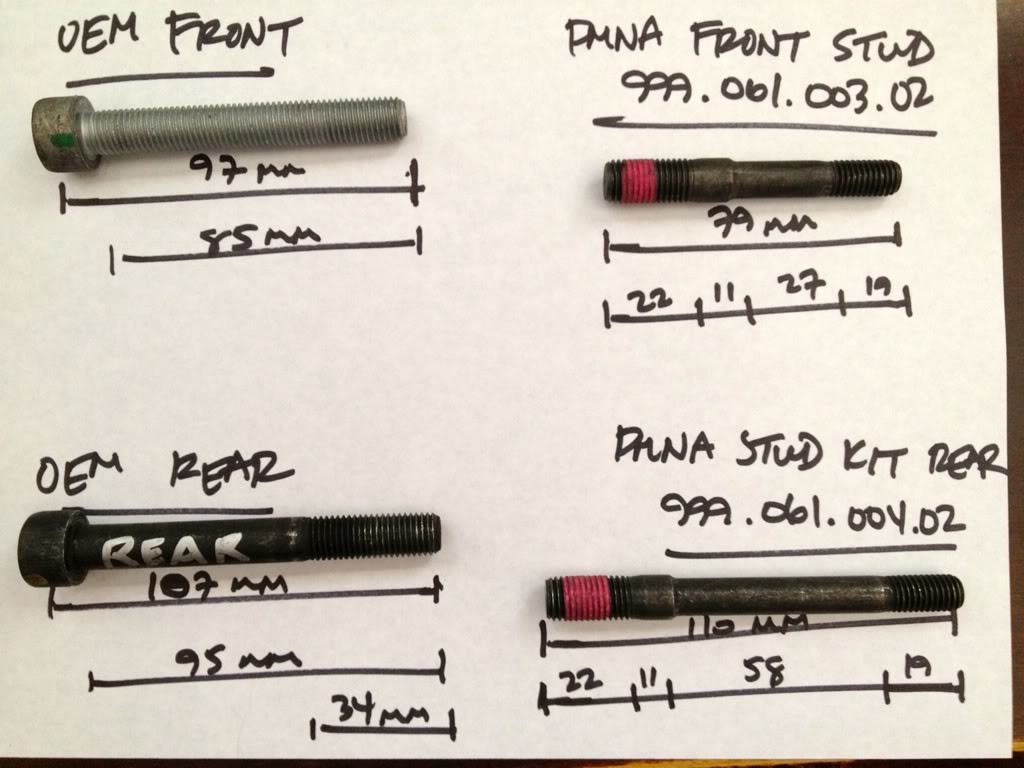 OEM FRONT
97 mm
85 mm
PMNA FRONT STUD
999.061.003.02
79 mm
22 11 27 19
OEM REAR
REAR
107 mm
95 mm
34 mm
PMNA STUD KIT REAR
999.061.004.02
110 mm
22 11 58 19